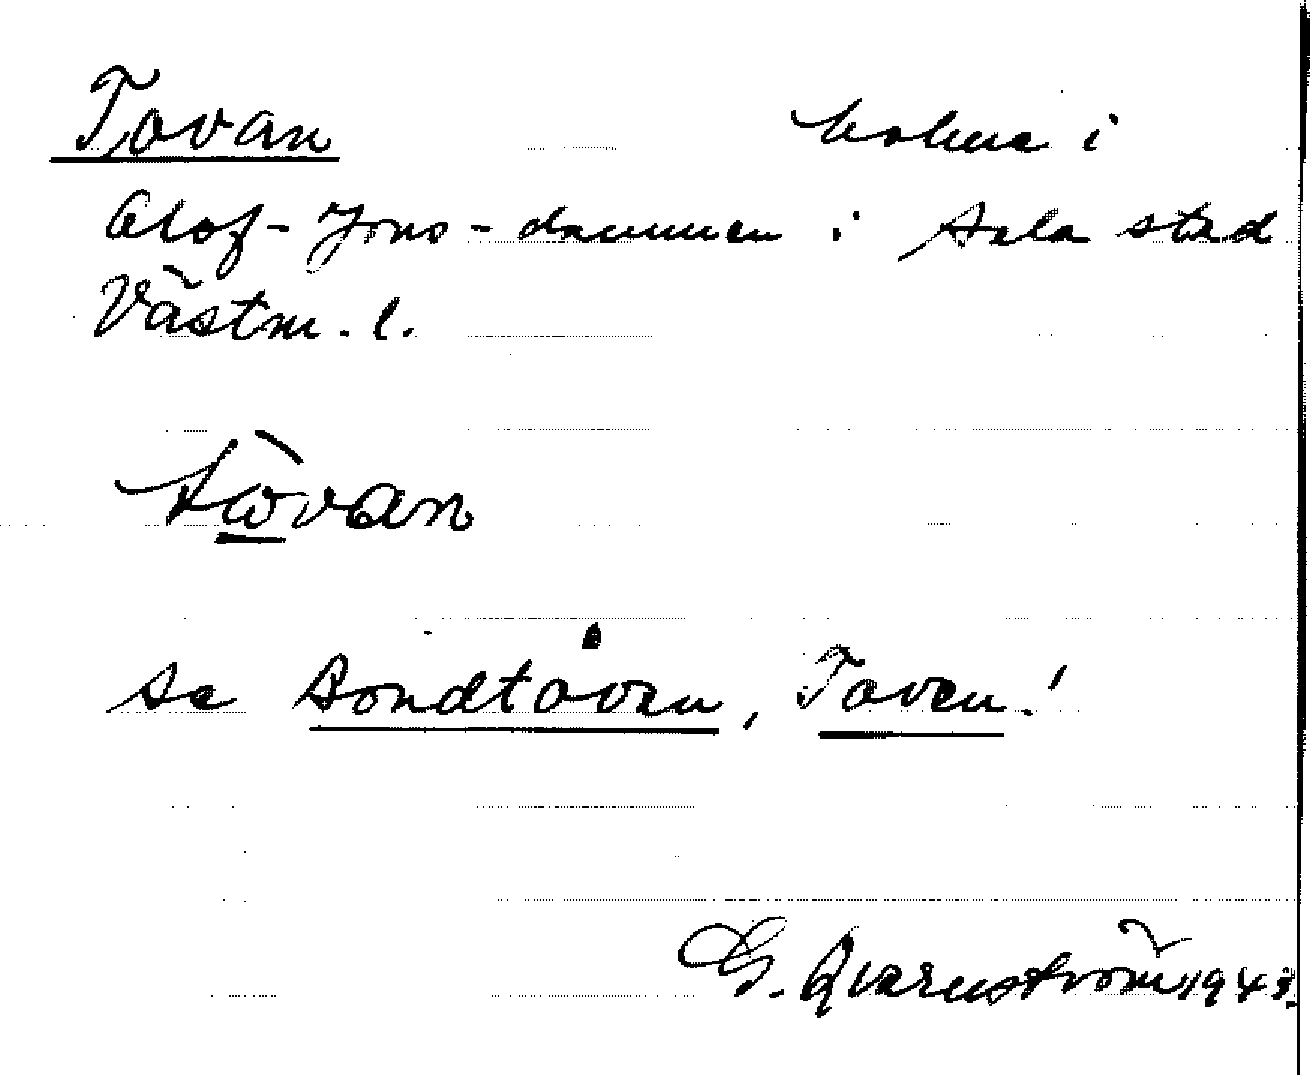 Tovan holme i
Olof-Jons-dammen i Sala stad
Västm. l.
tὼvan
se , Taven!
G. Qvarnström 1943.